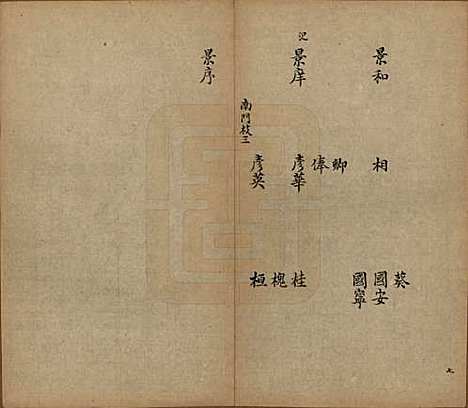 景和
相
葵
國安
國寧
汜
景庠
卿
俸
彥華
彥英
桂
槐
桓
南門枝三
景序
七